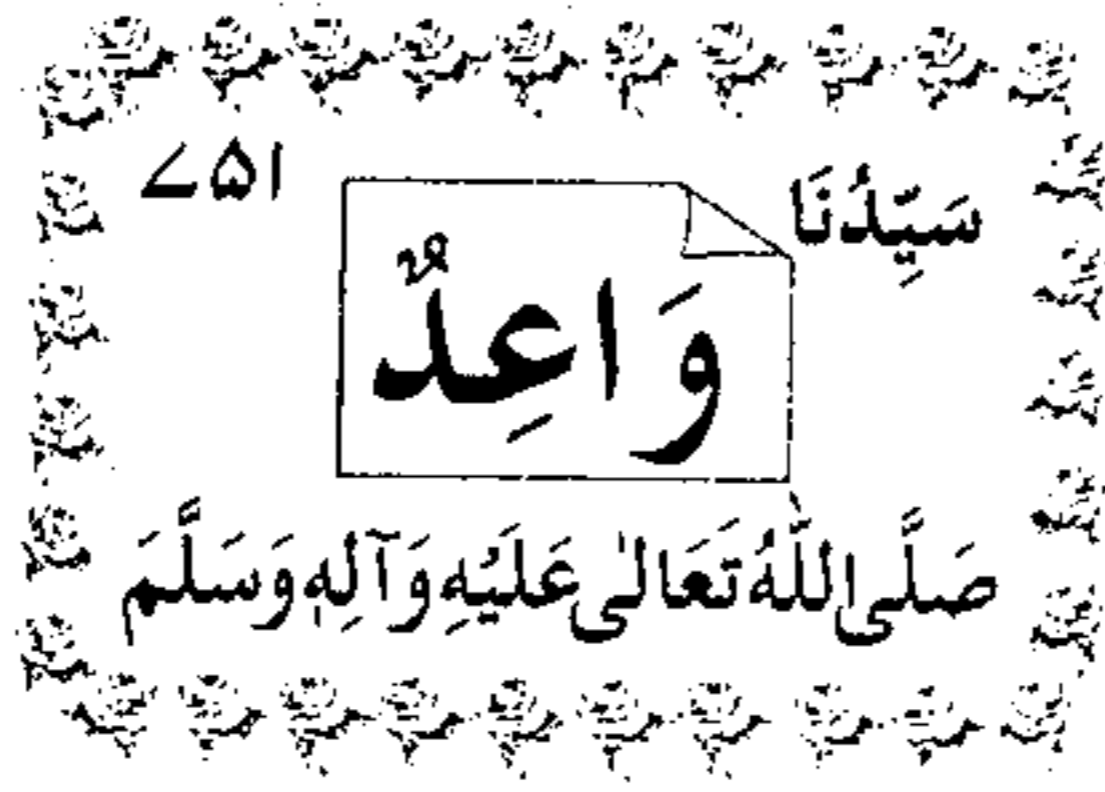 سَيِّدُنَا
۷۵۱
وَاعِدٌ
صَلَّى اللّٰهُ تَعَالٰى عَلَيْهِ وَآلِهٖ وَسَلَّمَ